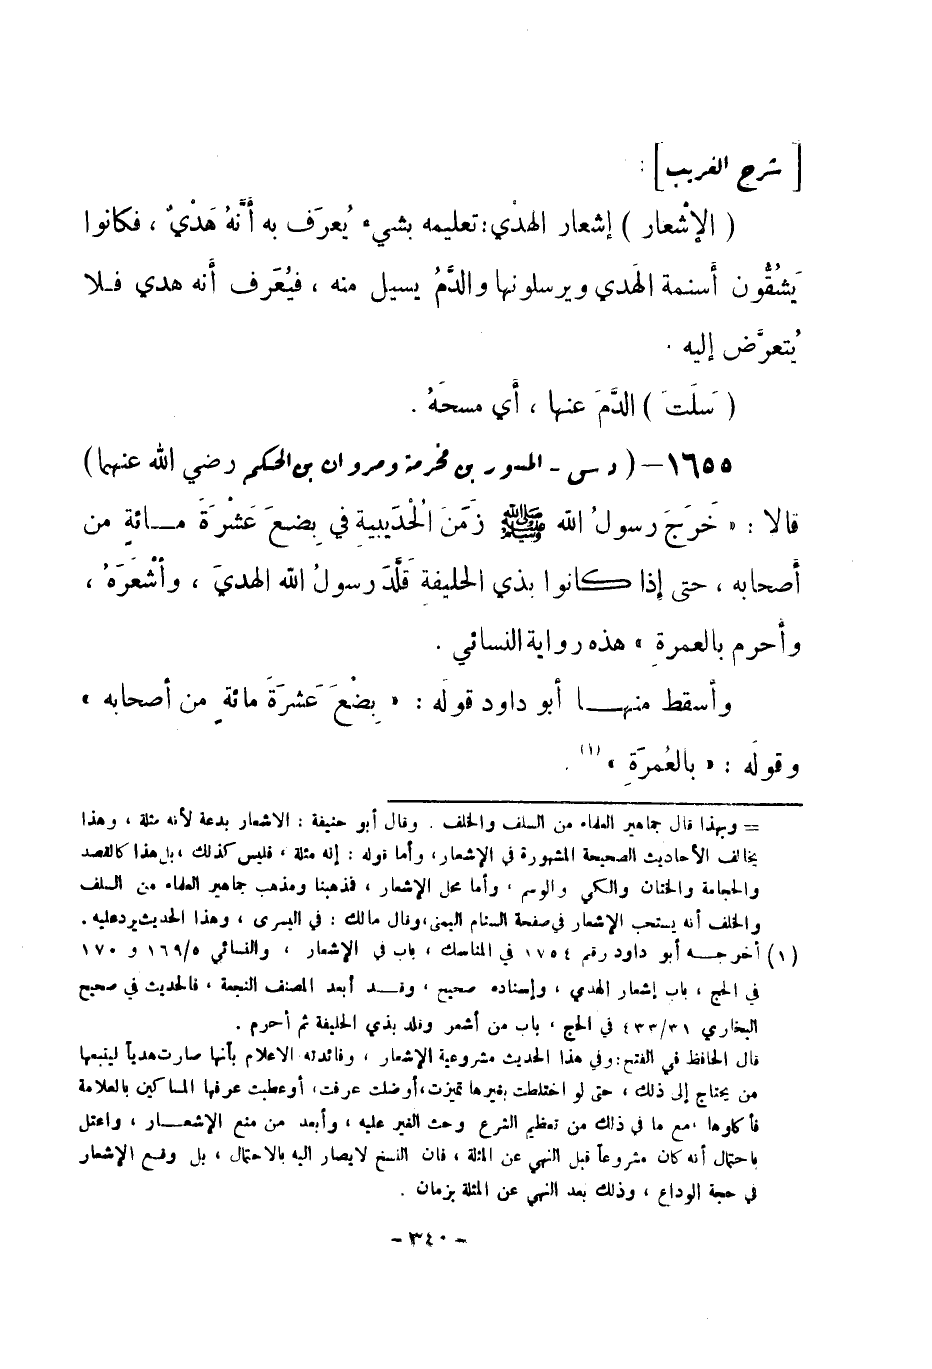 [ شرح الغريب ] :
( الإشْعار ) إشعار الهدْي : تعليمه بشيء يُعرَف به أنَّهُ هَدْيٌ ، فكانوا
يَشُقُّون أسنمة الهَدي ويرسلونها والدَّمُ يسيل منه ، فيُعْرَف أنه هدي فلا
يُتعرَّض إليه .
( سَلَتَ ) الدَّمَ عنها ، أي مسحَهُ .
١٦٥٥ – ( د س - المسور بن مخرمة ومروان بن الحكم رضي الله عنهما )
قالا : « خَرَجَ رسولُ الله ﷺ زَمَنَ الْحُدَيبية في بِضعَ عَشْرَةَ مائةٍ من
أصحابه ، حتى إذا كانوا بذي الحليفةِ قَلَّدَ رسولُ الله الهديَ ، وأشْعَرَهُ ،
وأحرم بالعمرةِ » هذه رواية النسائي .
وأسقط منها أبو داود قولَه : « بِضْعَ عَشرَةَ مائةٍ من أصحابه »
وقولَه : « بالعُمرَةِ » (١) .
= وبهذا قال جماهير العلماء من السلف والخلف . وقال أبو حنيفة : الاشعار بدعة لأنه مثلة ، وهذا
يخالف الأحاديث الصحيحة المشهورة في الإشعار ، وأما قوله : إنه مثلة ، فليس كذلك ، بل هذا كالفصد
والحجامة والختان والكي والوسم ، وأما محل الإشعار ، فذهبنا ومذهب جماهير العلماء من السلف
والخلف أنه يستحب الإشعار في صفحة السنام اليمنى ، وقال مالك : في اليسرى ، وهذا الحديث يرد عليه .
(١) أخرجه أبو داود رقم ١٧٥٤ في المناسك ، باب في الإشعار ، والنسائي ١٦٩/٥ و ١٧٠
في الحج ، باب إشعار الهدي ، وإسناده صحيح ، وقد أبعد المصنف النجعة ، فالحديث في صحيح
البخاري ٤٣٣/٣١ في الحج ، باب من أشعر وقلد بذي الحليفة ثم أحرم .
قال الحافظ في الفتح : وفي هذا الحديث مشروعية الإشعار ، وفائدته الاعلام بأنها صارت هدياً ليتبعها
من يحتاج إلى ذلك ، حتى لو اختلطت بغيرها تميزت ، أو ضلت عرفت ، أو عطبت عرفها المساكين بالعلامة
فأكلوها ، مع ما في ذلك من تعظيم الشرع وحث الغير عليه ، وأبعد من منع الإشعار ، واعتل
باحتمال أنه كان مشروعاً قبل النهي عن المثلة ، فان النسخ لا يصار اليه بالاحتمال ، بل وقع الإشعار
في حجة الوداع ، وذلك بعد النهي عن المثلة بزمان .
- ٣٤٠ -